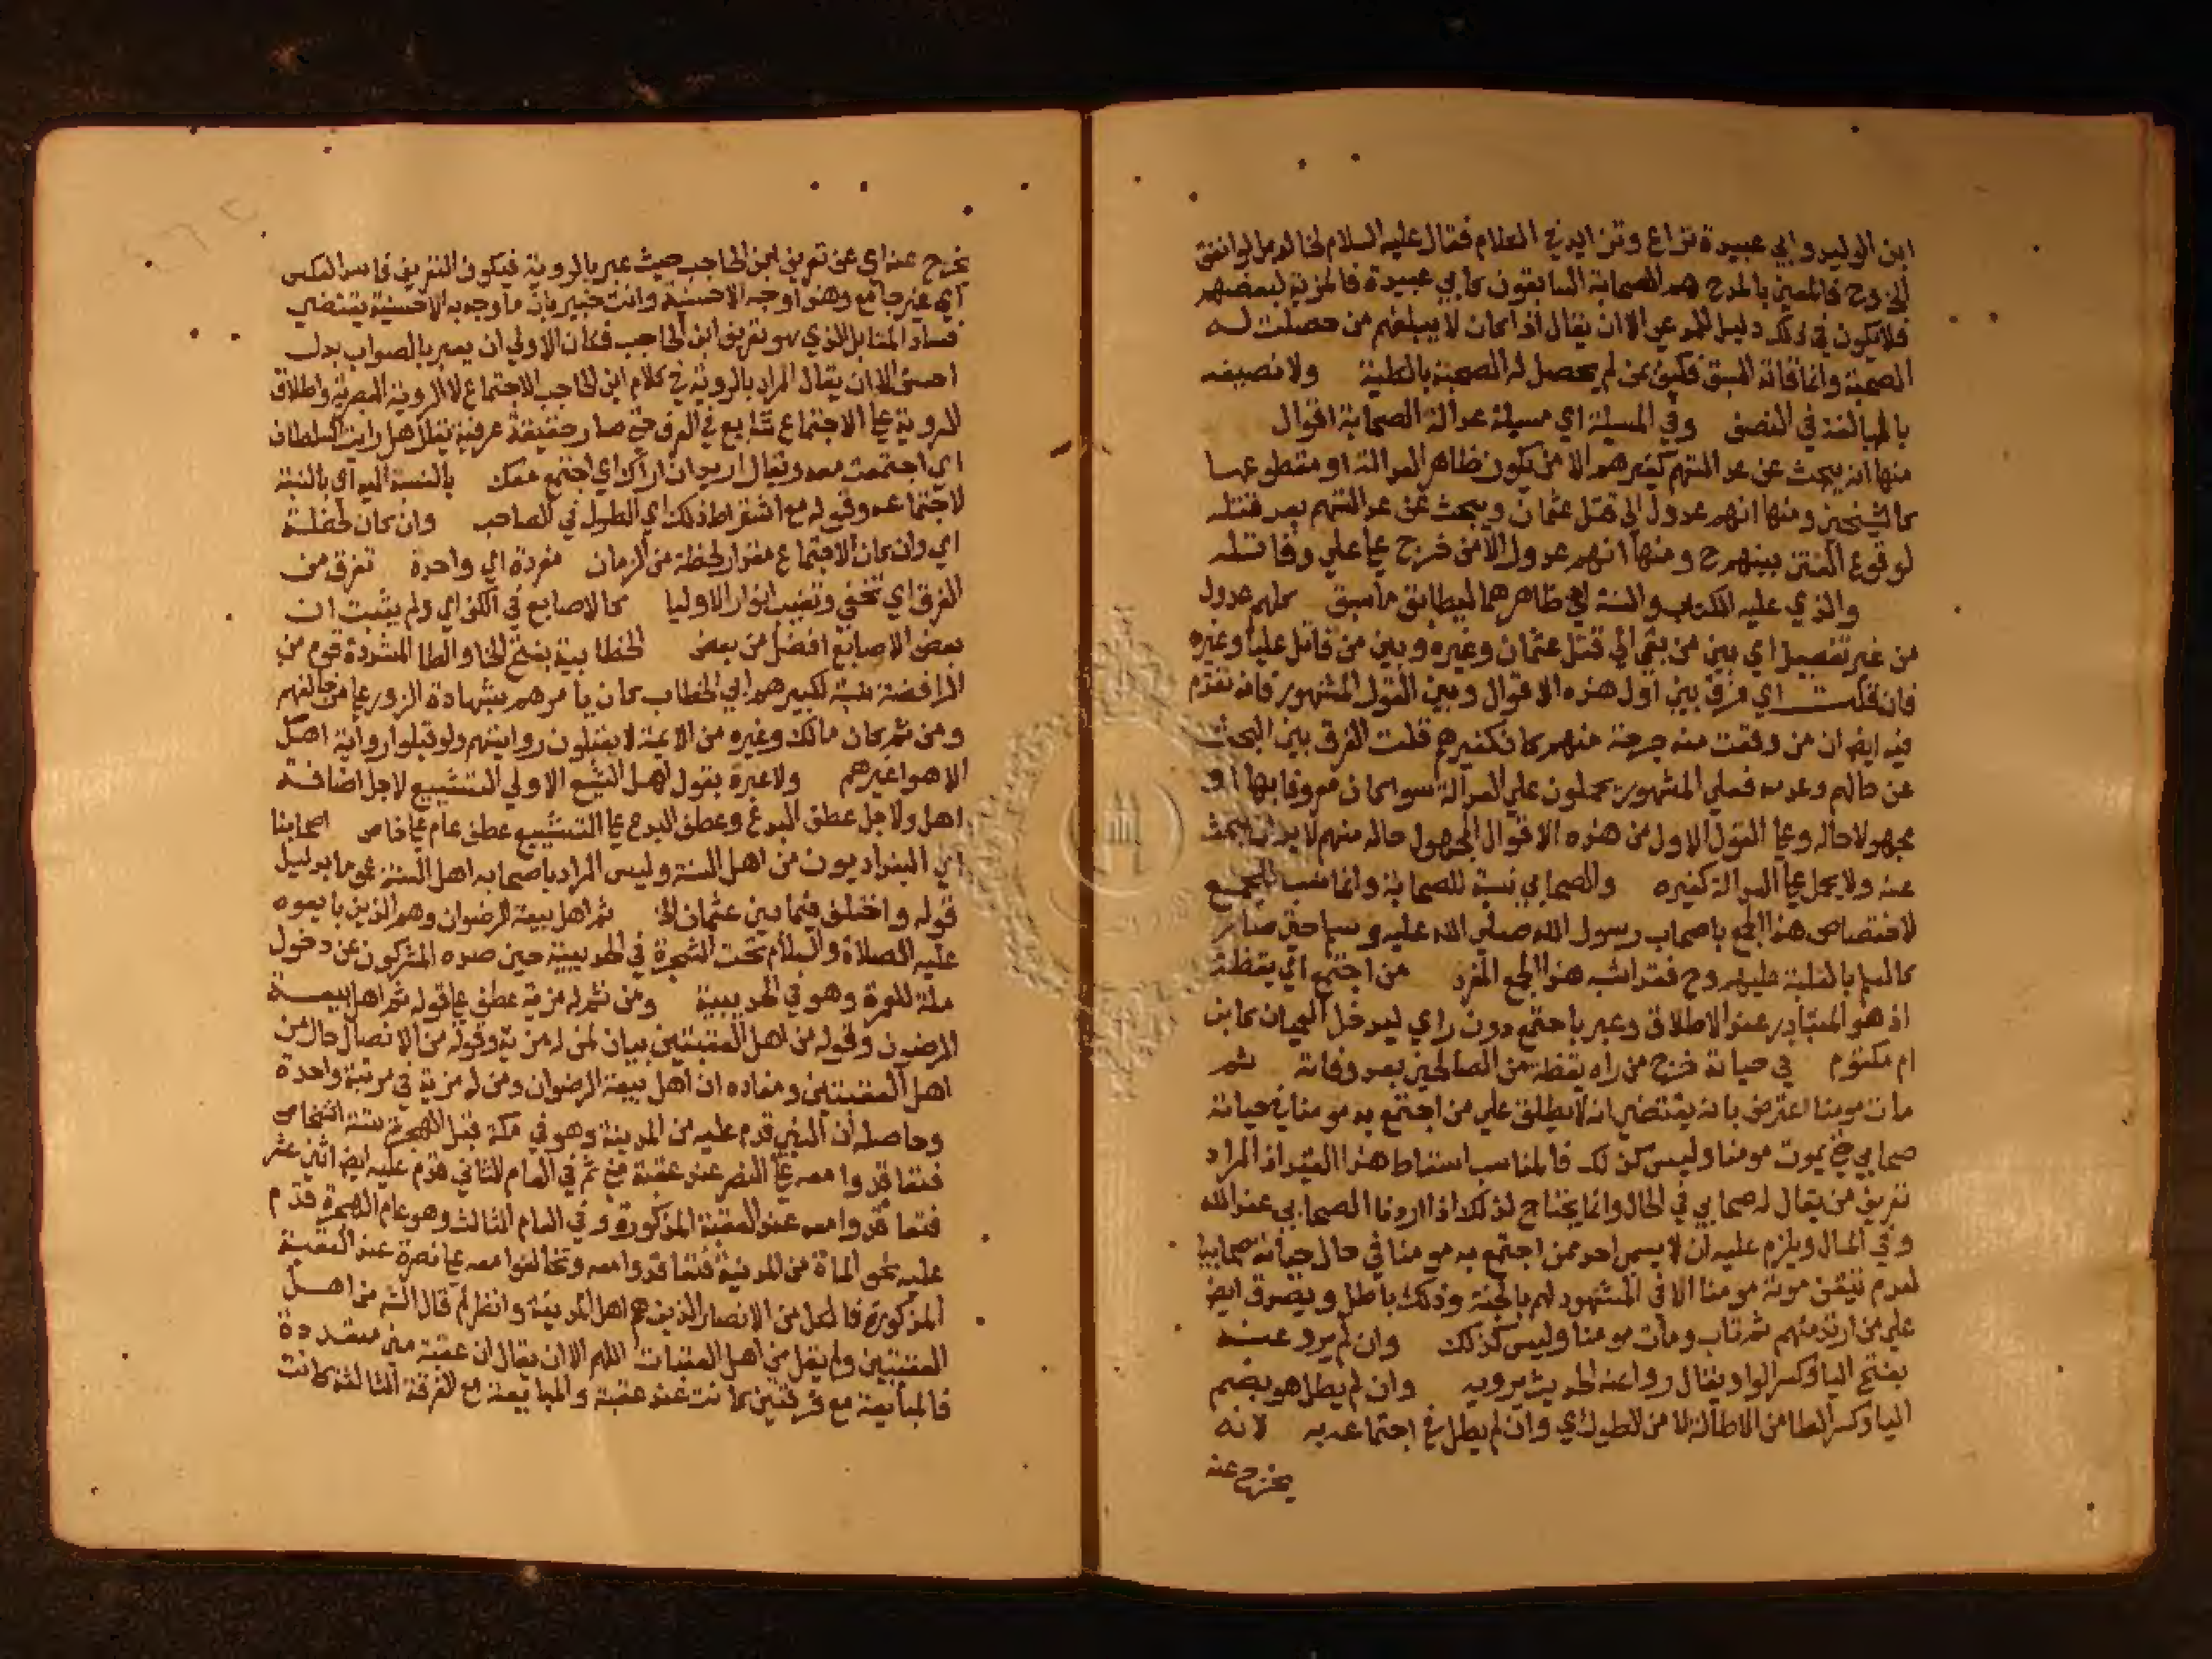 ابن الوليد وابي عبيدة نزاع وتزايد في الكلام فقال عليه السلام لخالد ما لو انفق
الخ وح فالمعني بالمدح هم الصحابة السابقون كابي عبيدة فالمزية لبعضهم
فلا يكون في ذلك دليل للمدعي الا ان يقال اذا كان لا يبلغهم من حصلت له
الصحبة وانما فاته السبق فكيف بمن لم يحصل له الصحبة بالكلية ولا نصيفه
بالمبالغة في النصف وفي المسيلة اي مسيلة عدالة الصحابة اقوال
منها انه يبحث عن عدالتهم كغيرهم الا من يكون ظاهر العدالة او مقطوعها
كالشيخين ومنها انهم عدول الي قتل عثمان ويبحث عن عدالتهم بعد قتله
لوقوع الفتن بينهم ح ومنها انهم عدول الا من خرج علي علي وقاتله
والذي عليه الكتاب والسنة اي ظاهرهما ليطابق ما سبق كلهم عدول
من غير تفصيل اي بين من بقي الي قتل عثمان وغيره وبين من قاتل عليا وغيره
فان قلت اي فرق بين اول هذه الاقوال وبين القول المشهور فانه تقدم
فيه ايضا ان من وقعت منه جرحة منهم كان كغيرهم قلت الفرق بين البحث
عن حالهم وعدمه فعلي المشهور يحملون علي العدالة سوا كان معروفا بها او
مجهولا حاله وعلي القول الاول من هذه الاقوال المجهول حاله منهم لا بد ان يبحث
عنه ولا يحمل علي العدالة كغيره والصحابي نسبة للصحابة وانما نسب للجمع
لاختصاص هذا الجمع باصحاب رسول الله صلي الله عليه وسلم حتي صار
كالعلم بالغلبة عليهم وح فقد اشبه هذا الجمع المفرد من اجتمع اي يقظة
اذ هو المتبادر عند الاطلاق وعبر باجتمع دون راي ليدخل العميان كابن
ام مكتوم في حياته خرج من راه يقظة من الصالحين بعد وفاته ثم
مات مومنا اعترض بانه يقتضي انه لا يطلق علي من اجتمع به مومنا في حياته
صحابي حتي يموت مومنا وليس كذلك فالمناسب اسقاط هذا القيد اذ المراد
تعريف من يقال له صحابي في الحال وانما يحتاج لذلك اذا اردنا الصحابي عند الله
وفي المال ويلزم عليه ان لا يسمي احد ممن اجتمع به مومنا في حال حياته صحابيا
لعدم تيقن موته مومنا الا في المشهود لهم بالجنة وذلك باطل ويصدق ايضا
علي من ارتد منهم ثم تاب ومات مومنا وليس كذلك وان لم يرو عنه
بفتح اليا وكسر الواو ويقال روا عنه الحديث يرويه وان لم يطل هو بضم
اليا وكسر الطا من الاطالة لا من الطول اي وان لم يطل اجتماعه به لانه
يخرج عنه
يخرج عنه اي عن تعريف ابن الحاجب حيث عبر بالروية فيكون التعريف فاسد العكس
اي غير جامع وهذا وجه الاحسنية وانت خبير بان ما وجه به الاحسنية يقتضي
فساد المقابل الذي هو تعريف ابن الحاجب فكان الاولي ان يعبر بالصواب بدل
احسن الا ان يقال المراد بالروية في كلام ابن الحاجب الاجتماع لا الروية البصرية واطلاق
الروية علي الاجتماع شايع في العرف حتي صار حقيقة عرفية يقال هل رايت السلطان
اي اجتمعت معه ويقال اريد ان اراك اي اجتمع معك بالنسبة اليه اي بالنسبة
لاجتماعه وقوله مع اشتراط ذلك اي الطول في الصاحب وان كان لحظة
اي وان كان الاجتماع مقدار لحظة من الزمان مفردة اي واحدة تفرق من
الفرق اي تختفي وتغيب انوار الاوليا كالاصابع في الكف اي ولم يثبت ان
بعض الاصابع افضل من بعض الخطابية بفتح الخا والطا المشددة قوم من
الرافضة نسبة لكبيرهم ابي الخطاب كان يامرهم بشهادة الزور علي من خالفهم
ومن ثم كان مالك وغيره من الايمة لا يقبلون روايتهم ولو قبلوا رواية اهل
الاهوا غيرهم ولا عبرة بقول اهل الشيع الاولي التشييع لاجل اضافة
اهل ولاجل عطف البدع وعطف البدع علي التشييع عطف عام علي خاص اصحابنا
اي البغداديون من اهل السنة وليس المراد باصحابه اهل السنة عموما بدليل
قوله واختلف فيما بين عثمان الخ ثم اهل بيعة الرضوان وهم الذين بايعوه
عليه الصلاة والسلام تحت الشجرة في الحديبية حين صده المشركون عن دخول
مكة للعمرة وهو في الحديبية ومن ثم له مزية عطف علي قوله ثم اهل بيعة
الرضوان وقوله من اهل العقبتين بيان لمن له مزية وقوله من الانصار حال من
اهل العقبتين ومفاده ان اهل بيعة الرضوان ومن له مزية في مرتبة واحدة
وحاصله ان النبي قدم عليه من المدينة وهو في مكة قبل الهجرة ستة اشخاص
فتعاقدوا معه علي النصر عند عقبة مني ثم في العام الثاني قدم عليه ايضا اثني عشر
فتعاقدوا معه عند العقبة المذكورة وفي العام الثالث وهو عام الهجرة قدم
عليه نحو الماة من المدينة فتعاقدوا معه وتحالفوا معه علي نصرة عند العقبة
المذكورة فالكل من الانصار الذين هم اهل المدينة وانظر لم قال الشه من اهل
العقبتين ولم يقل من اهل العقبات اللهم الا ان يقال ان عقبة مني متعددة
فالمبايعة مع فرقتين كانت عند عقبة والمبايعة مع الفرقة الثالثة كانت